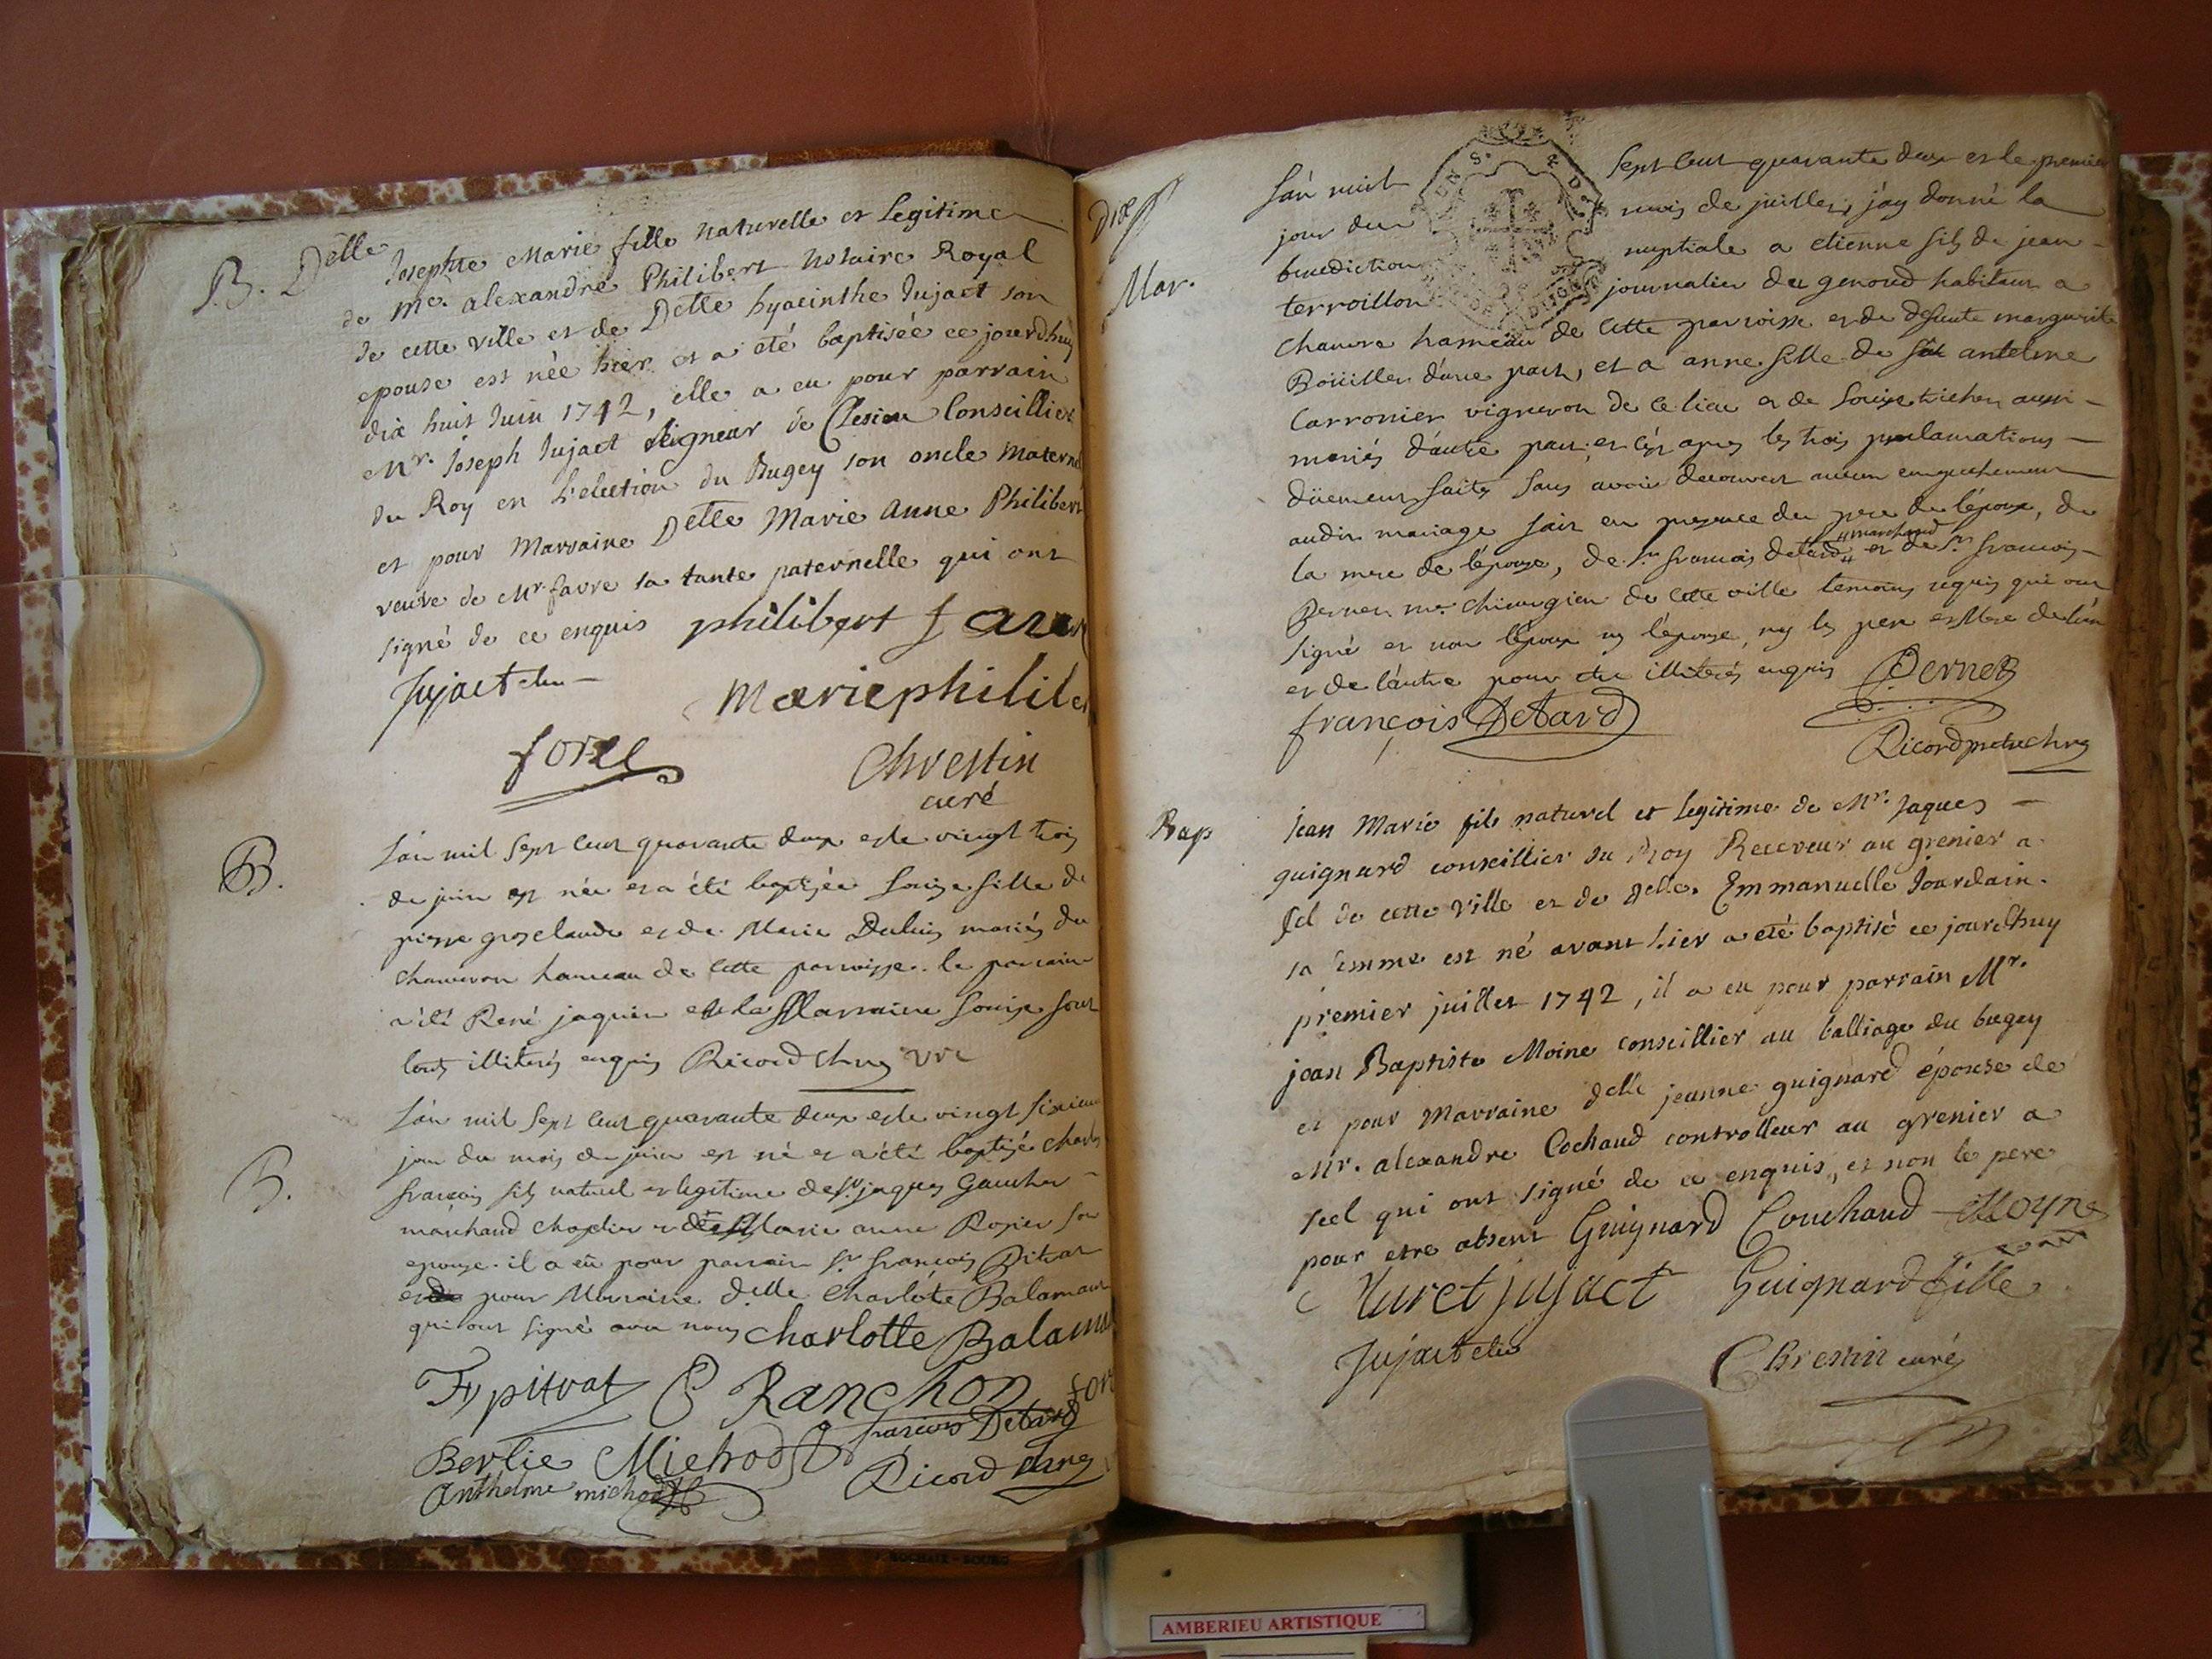 B. Delle Josephte Marie fille naturelle et Legitime
de Me. alexandre Philibert Notaire Royal
de cette ville et de Delle hyacinthe Jujact son
epouse est née hier et a été baptisée ce jourdhuy
dix huit Juin 1742, elle a eu pour parrain
Mr. Joseph Jujact seigneur de Conseillier
du Roy en L'election du Bugey son oncle maternel
et pour Marraine Delle Marie Anne Philibert
veuve de Mr. favre sa tante paternelle qui ont
signé de ce enquis philibert
Jujact
Marie philib
Chrestin
curé
B.
L'an mil sept cent quarante deux et le vingt trois
de juin est née et a été baptizée Louise fille de
pierre grosclaude et de Marie mariés du
hameau de cette parroisse. le parrain
a été René jaquin et la Marraine Louise sont
tous illiterés enquis Ricord
B.
L'an mil sept cent quarante deux et le vingt sixieme
jour du mois de juin est né et a été baptizé charles
francois fils naturel et legitime de Sr. jaques
marchand et de Marie anne Rozier son
epouze. il a eu pour parrain Sr francois Pitrat
et pour Marraine delle Charlote
qui ont signé avec nous Charlotte
pitrat Ranchon
francois Detard
Berlie Michod
Anthelme michod
Ricord
dix
Mar.
L'an mil sept cent quarante deux et le premier
jour du mois de juillet, j'ay donné la
benediction nuptiale a etienne fils de jean
terroillon journalier de genoud habitant a
hameau de cette parroisse et de defunte marguerite
d'une part, et a anne fille de anthelme
Carronier vigneron de ce lieu et de Louise aussi
mariés d'autre part, et ce apres les trois proclamations
düement faites sans avoir decouvert aucun empechement
audit mariage fait en presence du pere de l'époux, de
la mere de l'épouse, de Sr francois detard marchand et de Sr. francois
Pernet me. chirurgien de cette ville temoins requis qui ont
signé et non l'époux ny l'épouse, ny les pere et Mere de l'un
et de l'autre pour etre illiterés enquis Pernet
françois Detard
Ricord
Bap
Jean Marie fils naturel et Legitime de Mr. Jaques
guignard conseillier du Roy Receveur au grenier a
sel de cette ville et de delle. Emmanuelle Jourdain.
sa femme est né avant hier a eté baptisé ce jourdhuy
premier juillet 1742, il a eu pour parrain Mr.
jean Baptiste Moine conseillier au balliage du bugey
et pour Marraine delle jeanne guignard épouse de
Mr. alexandre Cochaud controlleur au grenier a
seel qui ont signé de ce enquis, et non le pere
pour etre absent Guignard Couchaud Moyne
jujact Guignard fille
Jujact
Chrestin curé
AMBERIEU ARTISTIQUE